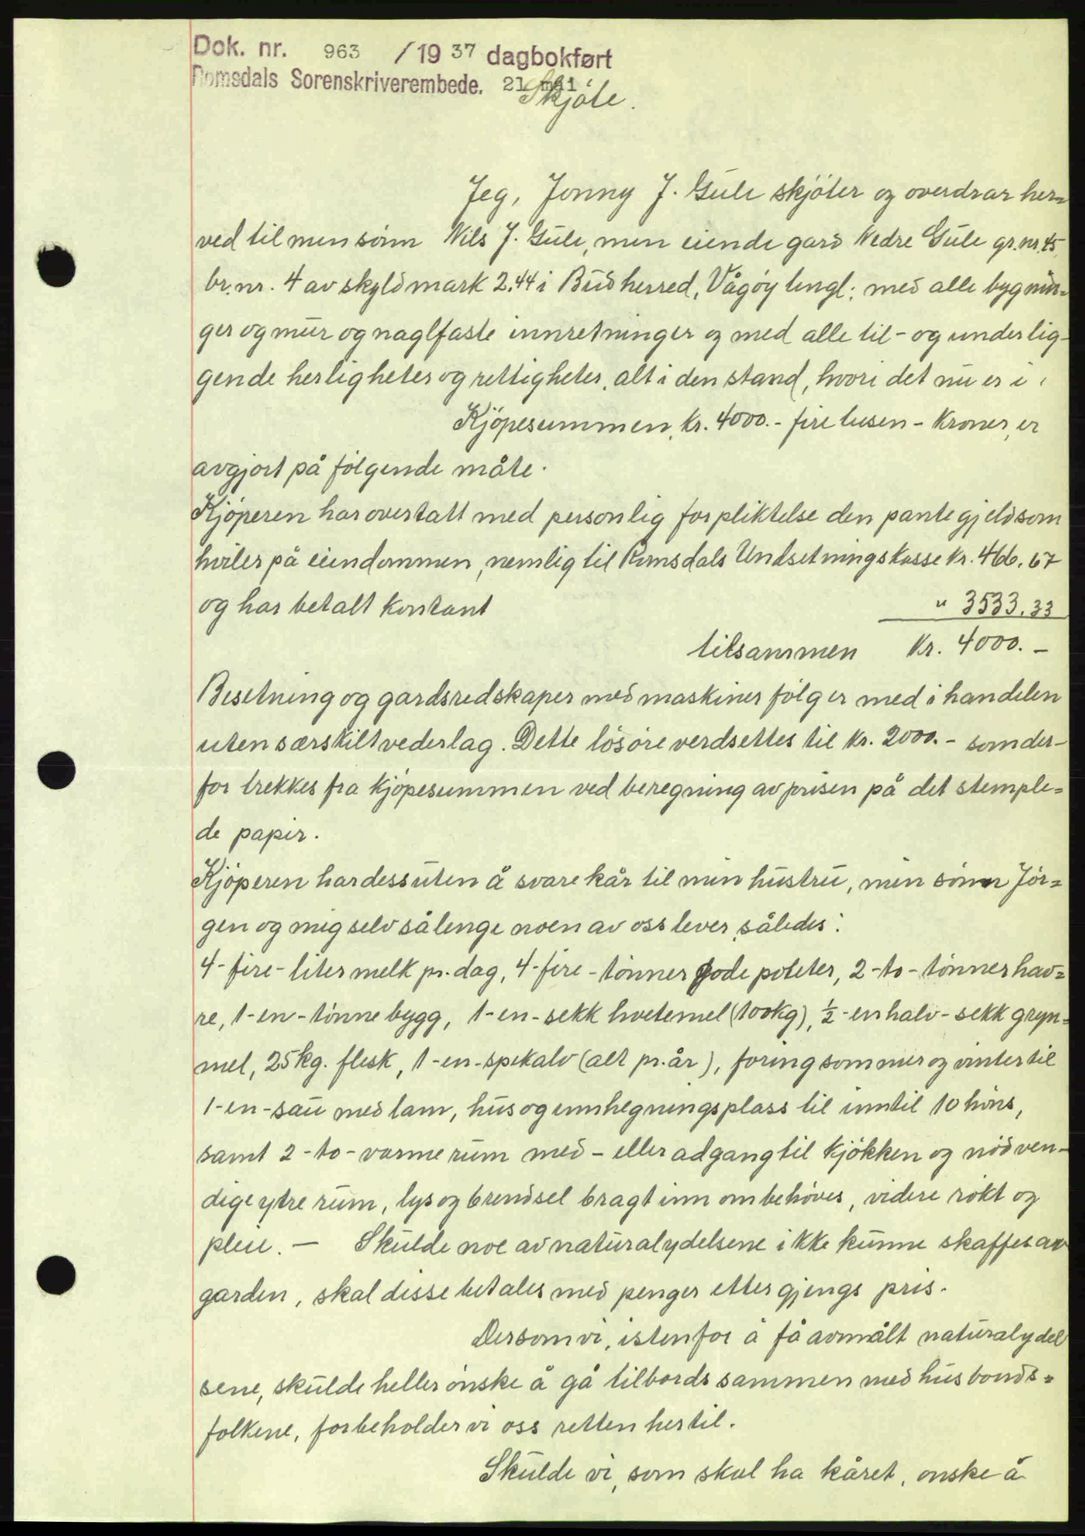 Dok. nr. 963 / 19 37 dagbokført
Romsdals Sorenskriverembede. 21 mai
Skjöte.
Jeg, Jonny J. Gule skjöter og overdrar her=
ved til min sönn Nils J. Gule, min eiende gard Nedre Gule gr.nr. 45,
br.nr. 4 av skyldmark 2.44 i Bud herred, Vågöy tingl: med alle bygnin=
ger og mur og naglfaste innretninger og med alle til- og underlig-
gende herligheter og rettigheter, alt i den stand, hvori det nu er i.
Kjöpesummen, kr. 4000.- fire tusen - kroner, er
avgjort på fölgende måte.
Kjöperen har overtatt med personlig forpliktelse den pantegjeld som
hviler på eiendommen, nemlig til Romsdals Undsetningskasse kr. 466.67
og har betalt kontant " 3533.33
tilsammen kr. 4000.-
Besetning og gardsredskaper med maskiner fölger med i handelen
uten særskilt vederlag. Dette lösöre verdsettes til kr. 2000.- som der-
for trekkes fra kjöpesummen ved beregning av prisen på det stemple=
de papir.
Kjöperen har dessuten å svare kår til min hustru, min sönn Jör=
gen og mig selv sålenge noen av oss lever, således:
4-fire-liter melk pr. dag, 4-fire-tönner gode poteter, 2-to-tönner hav=
re, 1-en-tönne bygg, 1-en-sekk hvetemel (100kg), ½-en halv-sekk gryn=
mel, 25kg. flesk, 1-en-spekalv (alt pr. år), foring sommer og vinter til
1-en-sau med lam, hus og innhegningsplass til inntil 10 höns,
samt 2-to-varme rum med- eller adgang til kjökken og nödven-
dige ytre rum, lys og brendsel bragt inn om behöves, videre rökt og
pleie. - Skulde noe av naturalydelsene ikke kunne skaffes av
garden, skal disse betales med penger etter gjengs pris.
Dersom vi, istenfor å få avmålt naturalydel
sene, skulde heller önske å gå tilbords sammen med husbonds=
folkene, forbeholder vi oss retten hertil.
Skulde vi, som skal ha kåret, onske å